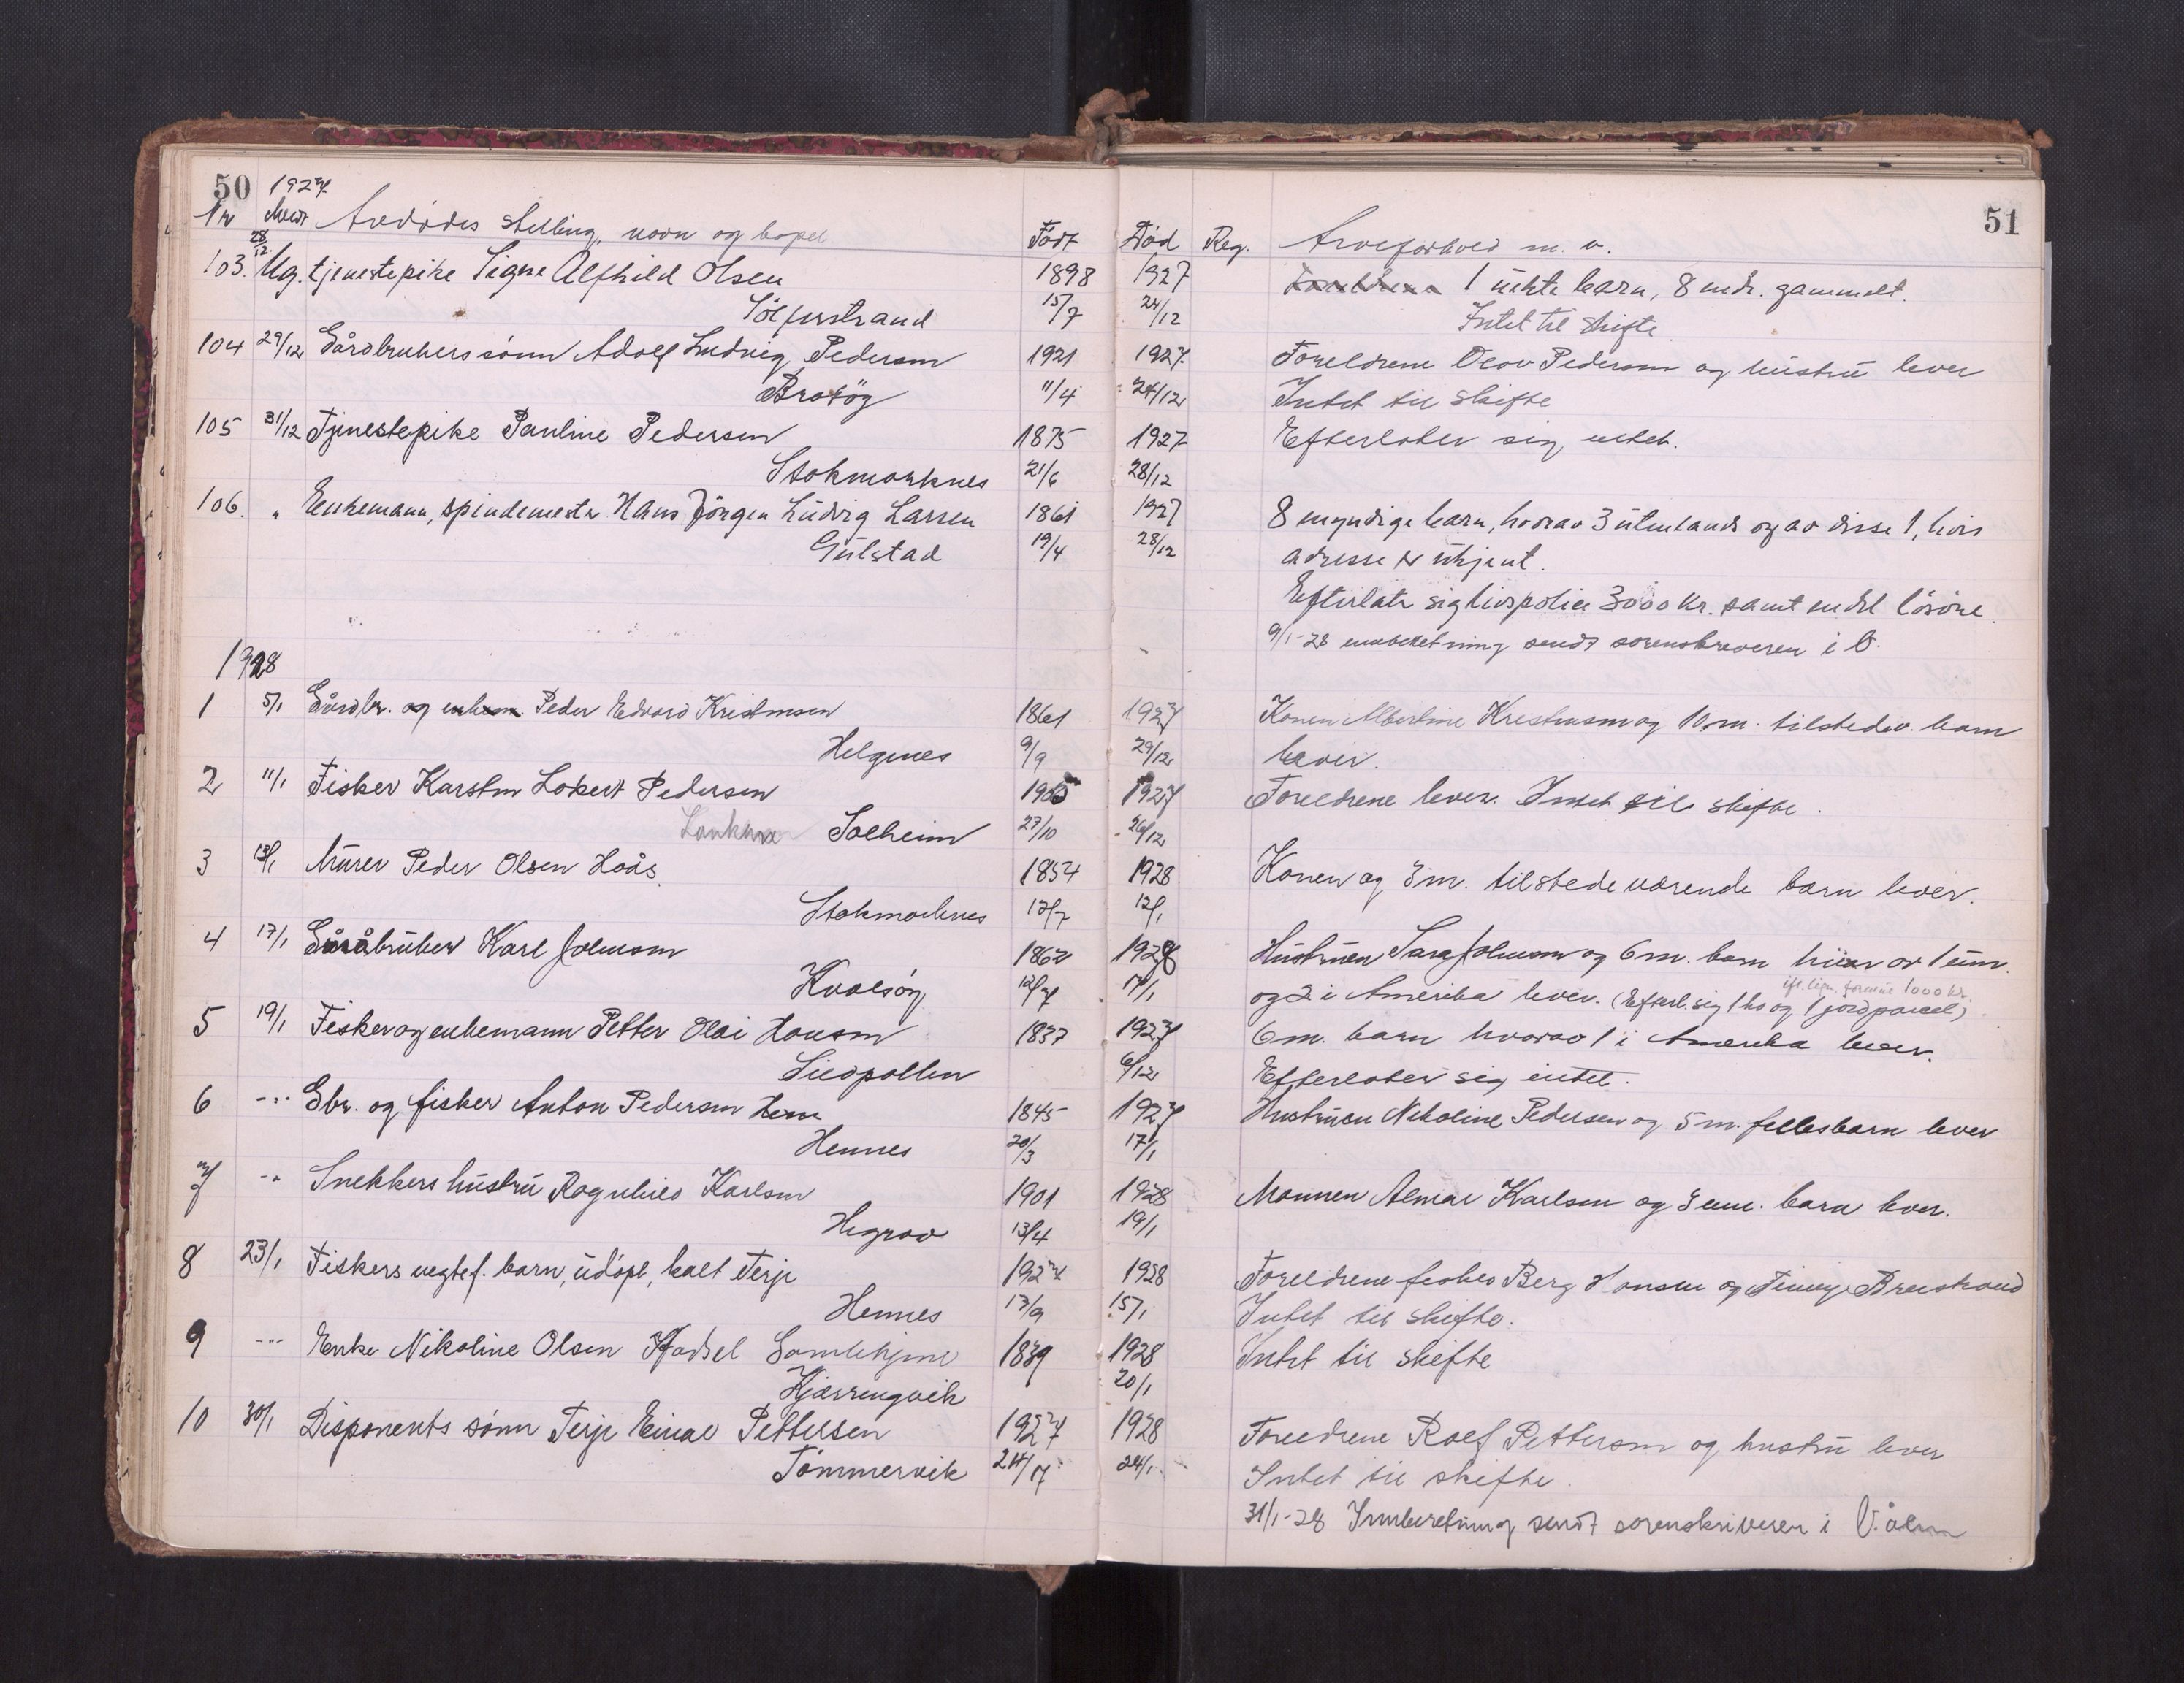 50 1927
Nr Meldt Avdødes stilling, navn og bopel Født Død Reg. Arveforhold m. v. 51
103. 28/12 Ug. tjenestepike Signe Alfhild Olsen 1898 1927 Foreldrene 1 uekte barn, 8 mdr. gammelt.
15/7 24/12 Intet til skifte
104 29/12 Gårdbrukers sønn Adolf Ludvig Pedersen 1921 1927 Foreldrene Olov Pedersen og hustru lever
11/4 24/12 Intet til skifte
105 31/12 Tjenestepike Pauline Pedersen 1875 1927 Efterlater sig intet.
Stokmarknes 21/6 28/12
106. " Enkemann, spindemester Hans Jørgen Ludvig Larsen 1861 1927 8 myndige barn, hvorav 3 utenlands og av disse 1, hvis
Gulstad 19/4 28/12 adresse er ukjent.
Efterlater sig livspolice 3000 kr. samt endel løsøre.
9/1-28 innberetning sendt sorenskriveren i V.
1928
1 5/1 Gårdbr. og enkem. Peder Edvard Kristensen 1861 1927 Konen Albertine Kristensen og 10 m. tilstedev. barn
Helgenes 9/9 29/12 lever.
2 11/1 Fisker Karsten Lokert Pedersen 1905 1927 Foreldrene lever. Intet til skifte.
Solheim 27/10 26/12
3 13/1 Murer Peder Olsen Hoås 1854 1928 Konen og 3 m. tilstedeværende barn lever.
Stokmarknes 12/7 12/1
4 17/1 Gårdbruker Karl Johnsen 1862 1928 Hustruen Sara Johnsen og 6 m. barn hvorav 1 um.
Kvalsøy 12/7 17/1 og 2 i Amerika lever. (Efterl. sig 1 ko og 1 jordparcel) ifl. lign. formue 1000 kr.
5 19/1 Fisker og enkemann Petter Olai Hansen 1837 1927 6 m. barn hvorav 1 i Amerika lever.
Sildpollen 6/12 Efterlater sig intet.
6 -"- Gbr. og fisker Anton Pedersen 1845 1927 Hustruen Nikoline Pedersen og 5 m. fellesbarn lever
Hennes 20/3 17/1
7 -"- Snekkers hustru Ragnhild Karlsen 1901 1928 Mannen Almar Karlsen og 3 um. barn lever.
Hegrav 13/4 19/1
8 23/1 Fiskers uegtef. barn, udøpt, kalt Terje 1927 1928 Foreldrene fisker Berg Hansen og Breistrand
Hennes 17/9 15/1 Intet til skifte.
9 -"- Enke Nikoline Olsen Hadsel Gamlehjem 1839 1928 Intet til skifte
Kjærringvik 20/1
10 30/1 Disponents sønn Terje Einar Pettersen 1927 1928 Foreldrene Rolf Pettersen og hustru lever
Tømmervik 24/1 Intet til skifte.
31/1-28 Innberetning sendt sorenskriveren i V.ålen